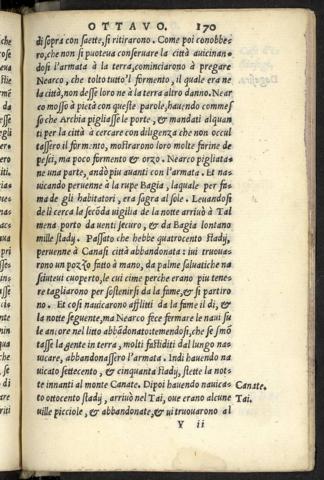 OTTAVO. 170
di sopra con saette, si ritirarono. Come poi conobbe-
ro, che non si poteua conseruare la città auicinan-
dosi l'armata à la terra, cominciarono à pregare
Nearco, che tolto tutto'l formento, il quale era ne
la città, non desse loro ne à la terra altro danno. Near
co mosso à pietà con queste parole, hauendo commes-
so che Archia pigliasse le porte, & mandati alquan
ti per la città à cercare con diligenza che non occul
tassero il formento, mostrarono loro molte farine de
pesci, ma poco formento & orzo. Nearco pigliata-
ne una parte, andò piu auanti con l'armata. Et na-
uicando peruenne à la rupe Bagia, laquale per fa-
ma de gli habitatori, era sagra al sole. Leuandosi
de lì cerca la secōda uigilia de la notte arriuò à Tal
mena porto da uenti securo, & da Bagia lontano
mille stadij. Passato che hebbe quattrocento stadij,
peruenne à Canasi città abbandonata: iui trouua-
rono un pozzo fatto à mano, da palme saluatiche na
sciuteui cuoperto, le cui cime perche erano piu tene-
re tagliarono per sostenirsi da la fame, & si partiro
no. Et così nauicarono afflitti da la fame il dì, &
la notte seguente, ma Nearco fece fermare le naui su
le ancore nel litto abbādonato: temendosi, che se smō
tasse la gente in terra, molti fastiditi dal lungo na-
uicare, abbandonassero l'armata. Indi hauendo na
uicato settecento, & cinquanta stadij, stette la not-
te innanti al monte Canate. Dipoi hauendo nauica-
Canate.
to ottocento stadij, arriuò nel Tai, oue erano alcune
Tai.
uille picciole, & abbandonate, & ui truouarono al
Y ii